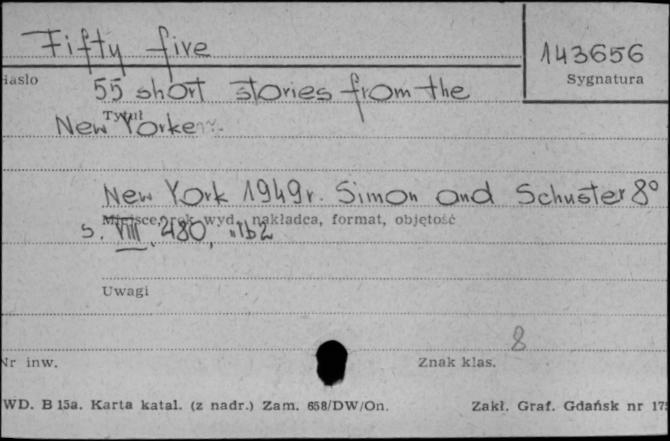 Fifty five
143656
Hasło
Sygnatura
55 short stories from the
Tytuł
New Yorker.
New York 1949r. Simon and Schuster 8°
Miejsce, rok wyd., nakładca, format, objętość
s. VIII, 480, nlb 2
Uwagi
8
Nr inw.
Znak klas.
WD. B 15a. Karta katal. (z nadr.) Zam. 658/DW/On.
Zakł. Graf. Gdańsk nr 17